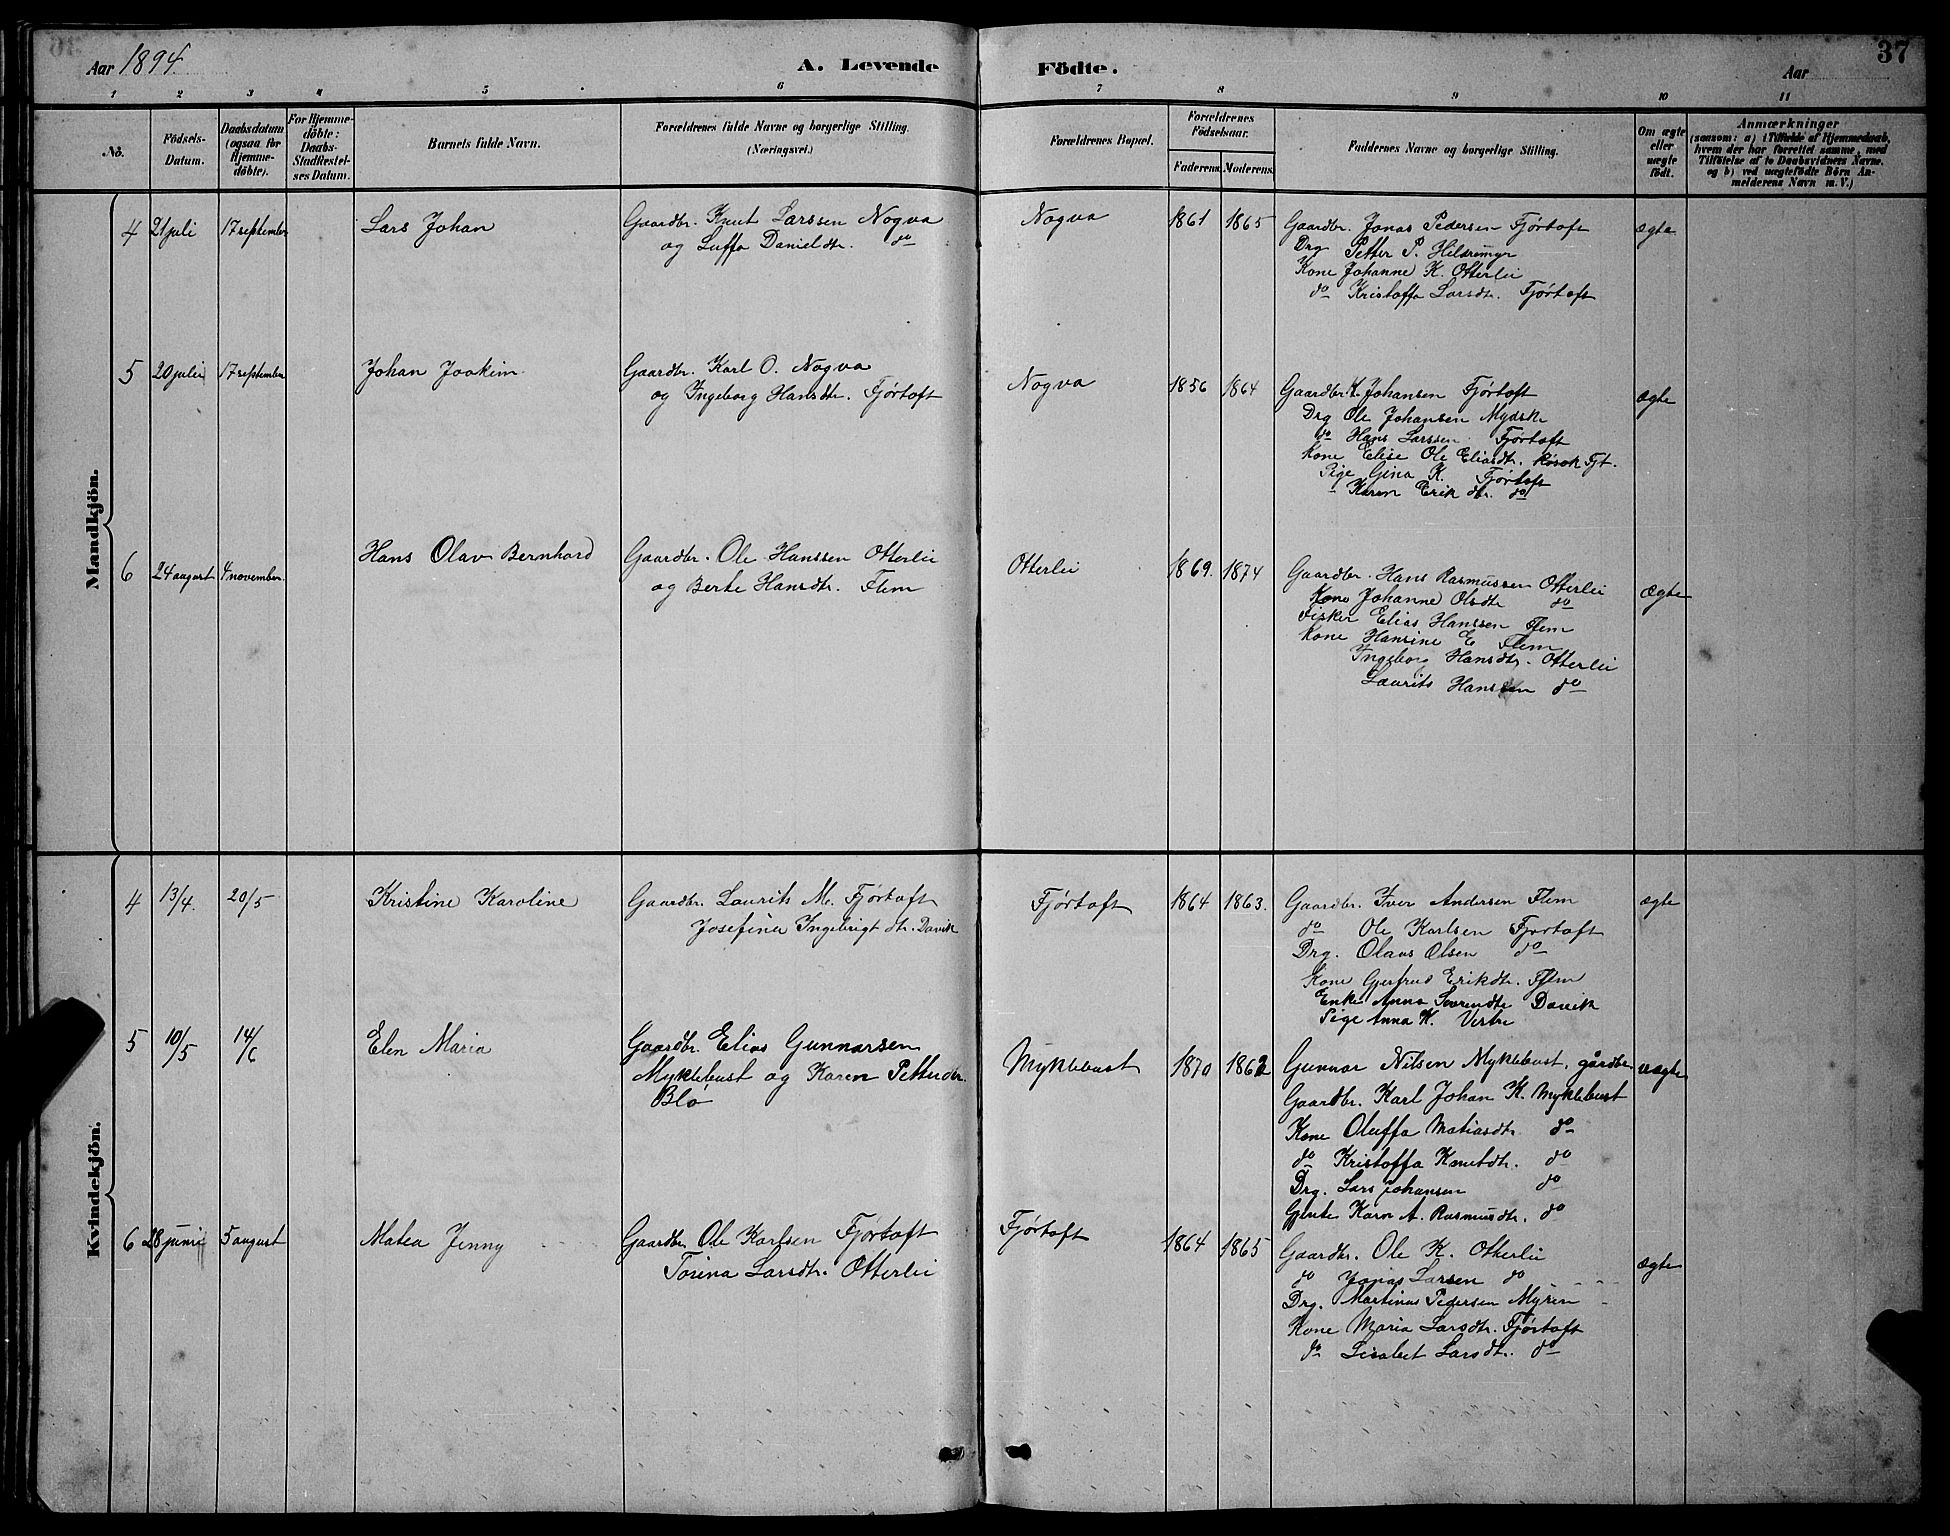 Aar 1894.
A. Levende Födte.
Aar
37
1 2 3 4 5 6 7 8 9 10 11
No.
Födsels-
Datum.
Daabsdatum
(ogsaa for
Hjemme-
döbte).
For Hjemme-
döbte:
Daabs-
Stadfestel-
ses Datum.
Barnets fulde Navn.
Forældrenes fulde Navne og borgerlige Stilling.
(Næringsvei.)
Forældrenes Bopæl.
Forældrenes
Födselsaar.
Faderens. Moderens.
Faddernes Navne og borgerlige Stilling.
Om ægte
eller
uægte
födt.
Anmærkninger
(saasom: a) i Tilfælde af Hjemmedaab,
hvem der har forrettet samme, med
Tilföielse af to Daabsvidners Navne.
og b) ved uægtefödte Börn An-
melderens Navn m. V.)
Mandkjön.
4 21 juli 17 september Lars Johan
Gaardbr. Knut Larssen Nogva
og Luffa Danieldtr. do
Nogva 1861 1865
Gaardbr. Jonas Pedersen Fjørtoft
Drg Petter P. Hildremyr
Kone Johanne K. Otterlei
do Kristoffa Larsdtr. Fjørtoft
ægte
5 20 juli 17 september Johan Joakim
Gaardbr. Karl O. Nogva
og Ingeborg Hansdtr. Fjørtoft
Nogva 1856 1864
Gaardbr. K Johansen Fjørtoft
Drg Ole Johansen Mydsk
do Hans Larssen Fjørtoft
Kone Elise Ole Eliasdtr. Fjt.
Pige Gina K. Fjørtoft
- Karen Erik dtr. do
ægte
6 24 august 4 november. Hans Olav Bernhard
Gaardbr. Ole Hanssen Otterlei
og Berte Hansdtr. Flem
Otterlei 1869. 1874
Gaardbr. Hans Rasmussen Otterlei
Kone Johanne Olsdtr do
Fisker Elias Hanssen Flem
Kone Hansine E Flem
Ingeborg Hansdtr. Otterlei
Laurits Hanssen do
ægte
Kvindekjön.
4 13/4. 20/5 Kristine Karoline
Gaardbr. Laurits M. Fjørtoft
Josefina Ingebrigt dtr. Davik
Fjørtoft 1864 1863.
Gaardbr. Iver Andersen Flem
do Ole Karlsen Fjørtoft
Drg. Olaus Olsen do
Kone Gjertrud Erikdtr. Flem
Enke Anna Sørendtr Davik
Pige Anna K. Vestre
ægte
5 10/5 14/6 Elen Maria
Gaardbr. Elias Gunnarsen
Myklebust og Karen Petterdtr.
Blø
Myklebust 1870 1862
Gunnar Nilsen Myklebust, gårdbr.
Gaardbr. Karl Johan K. Myklebust
Kone Oluffa Matiasdtr. do
do Kristoffa Knutdtr. do
Drg. Lars Johansen do
Gjente Karn A. Rasmusdtr. do
uægte
6 28 juni 5 august Matea Jenny
Gaardbr. Ole Karlsen Fjørtoft
Torina Larsdtr. Otterlei
Fjørtoft 1864 1865
Gaardbr. Ole K. Otterlei
do Jonas Larsen do
Drg. Martinus Pedersen Myren
Kone Maria Larsdtr. Fjørtoft
do Lisabet Larsdtr. do
ægte